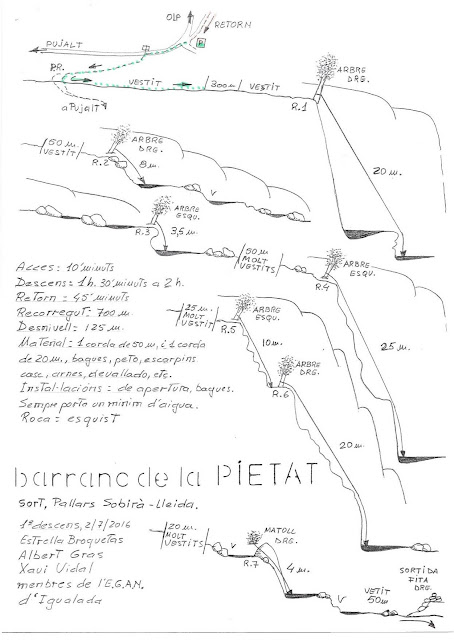 OLP
RETORN
PUJALT
P
PR.
VESTIT
300m
VESTIT
a Pujalt
R.1
ARBRE
DRE.
20 m.
50 m
VESTIT
R.2
ARBRE
DRE.
8 m.
V
R.3
ARBRE
ESQU.
3,5 m.
50 m
MOLT
VESTITS
R.4
ARBRE
ESQU.
25 m.
Acces: 10' minuts
Descens: 1h. 30' minuts a 2 h.
Retorn = 45' minuts
Recorregut: 700 m
Desnivell: 125 m.
Material = 1 corda de 50 m, i 1 corda
de 20 m., bagues, peto, escarpins
casc, arnes, devallado, etc.
Instal·lacións = de apertura, bagues.
Sempre porta un mínim d'aigua.
Roca = esquist
25 m.
MOLT
VESTIT
R.5
ARBRE
ESQU.
10 m.
ARBRE
DRE.
R.6
20 m.
barranc de la PIETAT
Sort, Pallars Sobirà - Lleida.
1º descens, 2/7/2016
Estrella Broquetas
Albert Gras
Xavi Vidal
menbres de l'E.G.A.N.
d'Igualada
20 m.
MOLT
VESTITS
V
R.7
MATOLL
DRE.
4 m.
V
VETIT
50 m
SORTIDA
FITA
DRE.